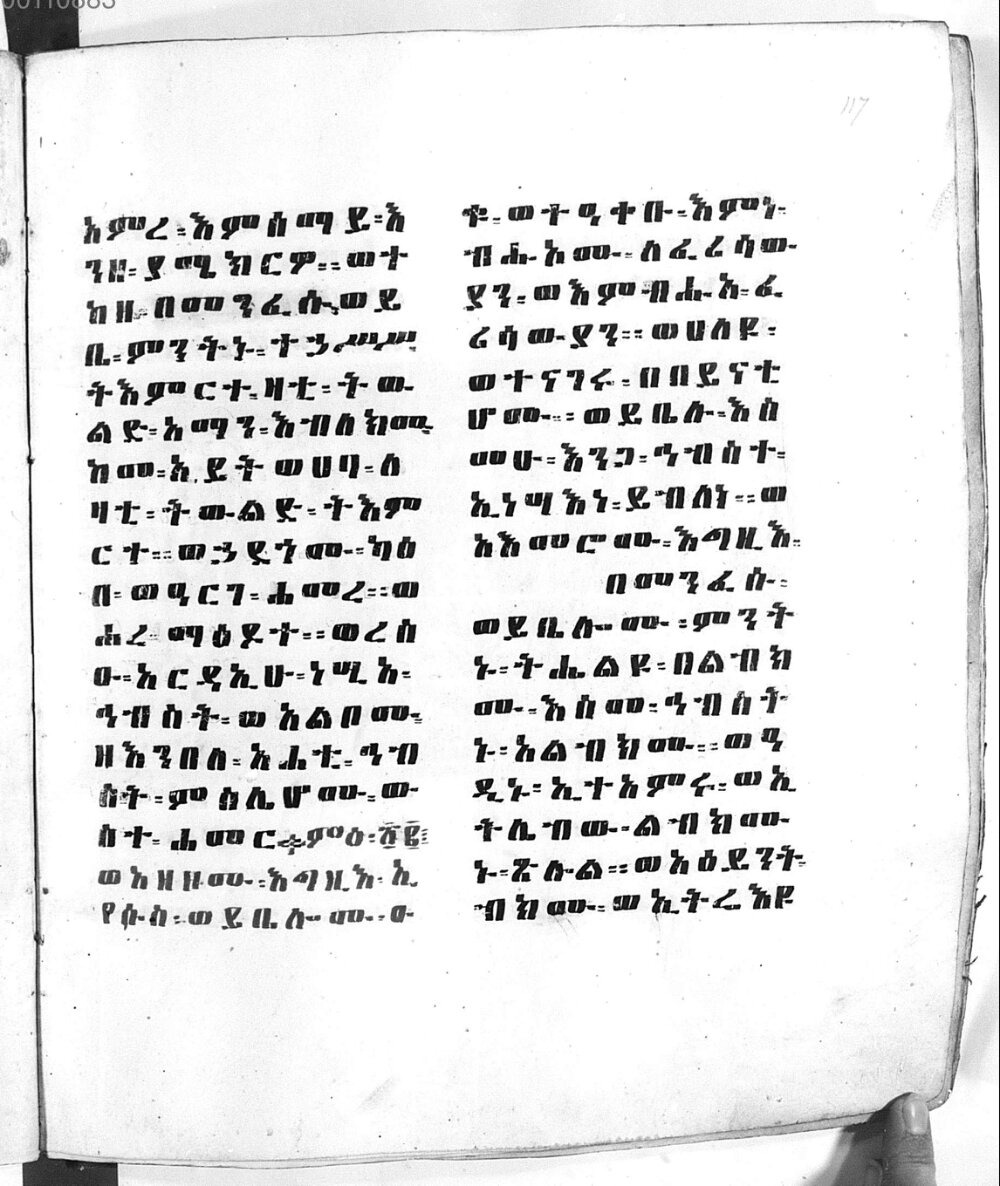 00110883
117
አምረ፡እምሰማይ፡እ
ንዘ፡ያሜክርዎ፡፡ወተ
ከዘ፡በመንፈሱ፡ወይ
ቤ፡ምንትኑ፡ተኃሥሥ
ትእምርተ፡ዛቲ፡ትው
ልድ፡አማን፡እብለክሙ
ከመ፡ኢይትወሀባ፡ለ
ዛቲ፡ትውልድ፡ትእም
ርት፡፡ወኃደጎሙ፡ካዕ
በ፡ወዓርገ፡ሐመረ፡፡ወ
ሖረ፡ማዕዶተ፡፡ወረስ
ዑ፡አርዳኢሁ፡ነሢአ፡
ኅብስት፡ወአልቦሙ፡
ዘእንበለ፡አሐቲ፡ኅብ
ስት፡ምስሌሆሙ፡ው
ስተ፡ሐመር፨ምዕ፡፳፪፡
ወአዘዞሙ፡እግዚእ፡ኢ
የሱስ፡ወይቤሎሙ፡ዑ
ቁ፡ወተዓቀቡ፡እምነ፡
ብሑአሙ፡ለፈሪሳው
ያን፡ወእምብሑአ፡ፈ
ሪሳውያን፡፡ወሀለዩ፡
ወተናገሩ፡በበይናቲ
ሆሙ፡፡ወይቤሉ፡እስ
መሁ፡እንጋ፡ኅብስተ፡
ኢነሣእነ፡ይብለነ፡፡ወ
አእመሮሙ፡እግዚእ፡
በመንፈሱ፡
ወይቤሎሙ፡ምንት
ኑ፡ትሔልዩ፡በልብክ
ሙ፡እስመ፡ኅብስት
ኑ፡አልብክሙ፡፡ወዓ
ዲኑ፡ኢተአምሩ፡ወኢ
ትሌብው፡ልብክሙ
ኑ፡ጽሉል፡፡ወአዕይንት
ብክሙ፡ወኢትሬእዩ